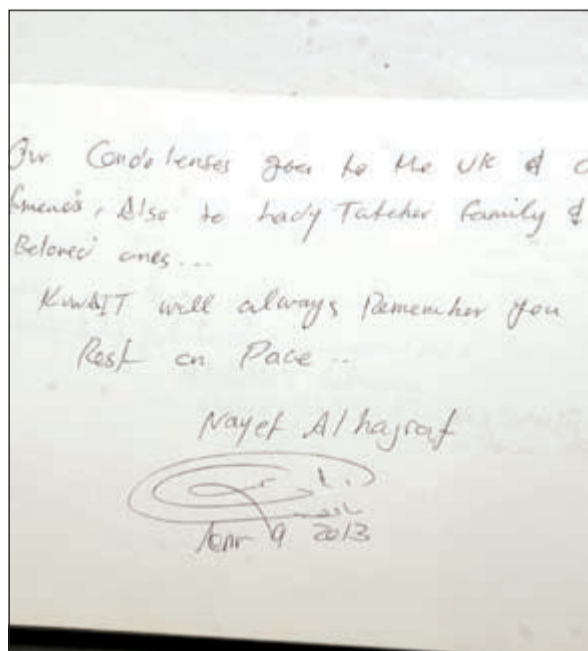 Our Condolenses goes to the UK &
Also to Lady Tatcher Family &
Beloved ones...
KUWAIT will always Remember you
Rest on Pace ..
Nayef Alhajraf
Apr 9 2013